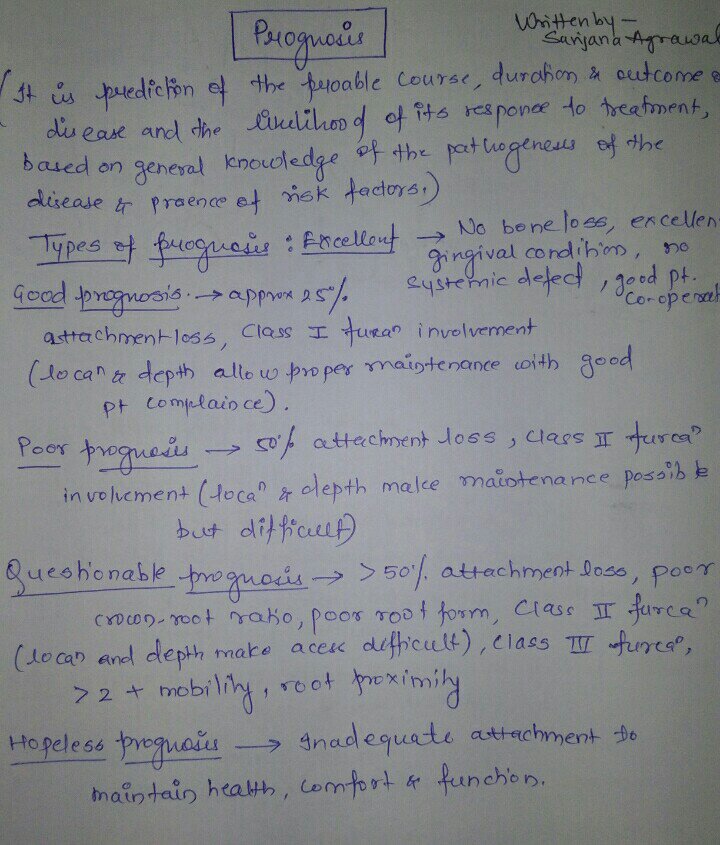 Prognosis
Written by -
Sanjana Agrawal
(It is prediction of the proable course, duration & outcome o
disease and the likelihood of its responce to treatment,
based on general knowledge of the pathogenesis of the
disease & praence of risk factors.)
Types of prognosis : Excellent → No bone loss, excellen
gingival condition, no
systemic defect, good pt.
Co-operat
Good prognosis. → approx 25%
attachment loss, Class I furcaⁿ involvement
(locaⁿ & depth allow proper maintenance with good
pt complaince).
Poor prognosis → 50% attachment loss, class II furcaⁿ
involvement (locaⁿ & depth make maintenance possible
but difficult)
Questionable prognosis → >50% attachment loss, poor
crown-root ratio, poor root form, Class II furcaⁿ
(locaⁿ and depth make acess difficult), class III furcaⁿ,
>2 + mobility, root proximity
Hopeless prognosis → Inadequate attachment to
maintain health, comfort & function.